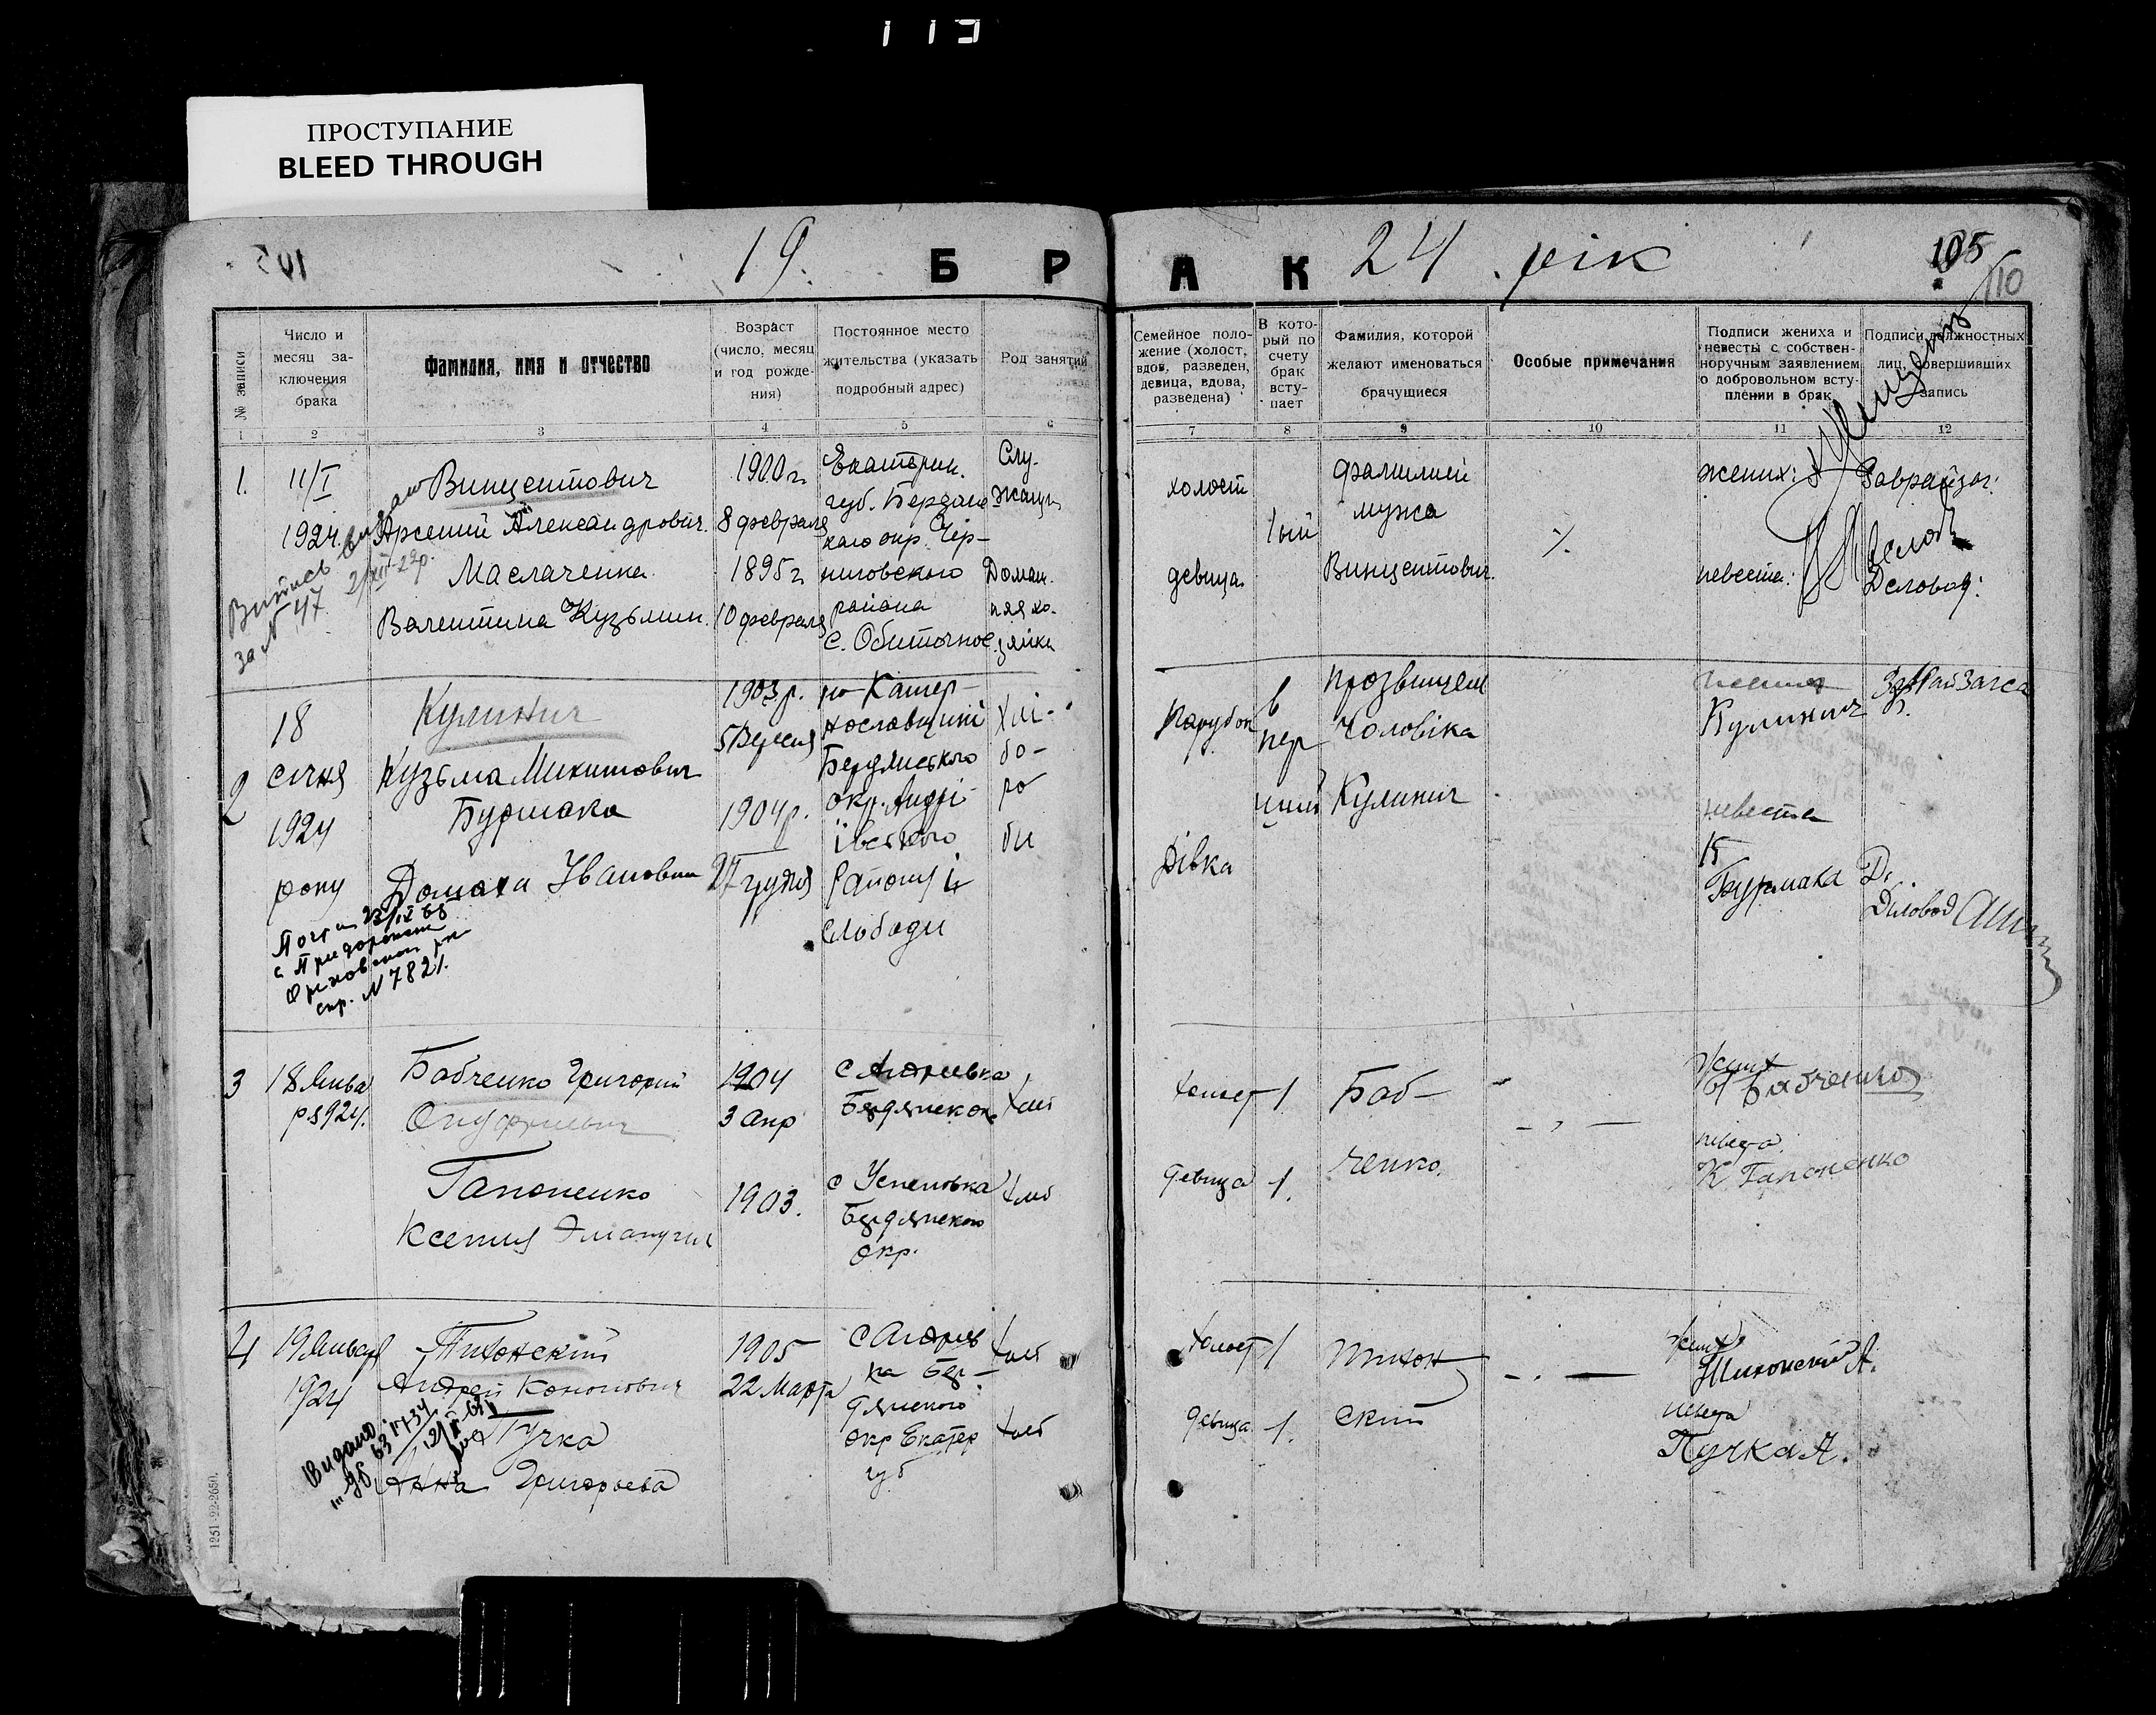 113
ПРОСТУПАНИЕ
BLEED THROUGH
105
19. БРАК 24. рік
105
110
№ записи
Число и месяц за-
ключения
брака
Фамилия, имя и отчество
Возраст
(число, месяц
и год рожде-
ния)
Постоянное место
жительства (указать
подробный адрес)
Род занятий
Семейное поло-
жение (холост,
вдов, разведен,
девица, вдова,
разведена)
В кото-
рый по
счету
брак
всту-
пает
Фамилия, которой
желают именоваться
брачущиеся
Особые примечания
Подписи жениха и
невесты с собствен-
норучным заявлением
о добровольном всту-
плении в брак
Подписи должностных
лиц, совершивших
запись
1 2 3 4 5 6 7 8 9 10 11 12
1.
11/I
1924
Винцентович
Арсений Александрович.
Маслаченка
Валентина Кузьмин.
1900 г.
8 февраля
1895 г.
10 февраля
Екатерин.
губ. Бердянс
кого окр. Чер-
ниговского
района
с. Обиточное
Слу-
жащи
Домаш.
няя хо-
зяйка
холост
девица.
1ый
фамилией
мужа
Винцентович.
жених:
невеста:
Деловод:
Витись видано
за № 47
2/XII-22р.
2
18
січня
1924
року
Кулинич
Кузьма Микитович
Бурлака
Домаха Ивановна
1903 р.
5 Вересня
1904 р.
27 грудня
на Катер-
нославщині
Бердянського
окр. Андрі-
ївського
Району і
Слободи
Хлі-
бо-
ро
би
Парубок
Дівка
в
пер
ший
прозвищем
Чоловіка
Кулинич
жених
Кулинич
невеста
Бурлака Д.
ЗавРайЗагса
Діловод
спр. N 7821.
3
18 Янва
ря 924.
Бабченко Григорий
Онуфриевич
Гапоненко
Ксения
1904
3 Апр
1903.
с Андреевка
Бердянск ок
с Успеновка
Бердянского
окр.
хлеб
хлеб
холост
девица
1.
1.
Баб-
ченко.
жених
Бабченко
невеста
К Гапоненко
4
19 Января
1924
Тихонский
Андрей Кононович
Пучка
Анна Григорьева
1905
22 Марта
с Андреев
ка Бер-
дянского
окр Екатер
губ
хлеб
хлеб
холост
девица
1
1.
Тихон
ский
жених
Тихонский А.
невеста
Пучка А.
Видано
1251-22-2650.